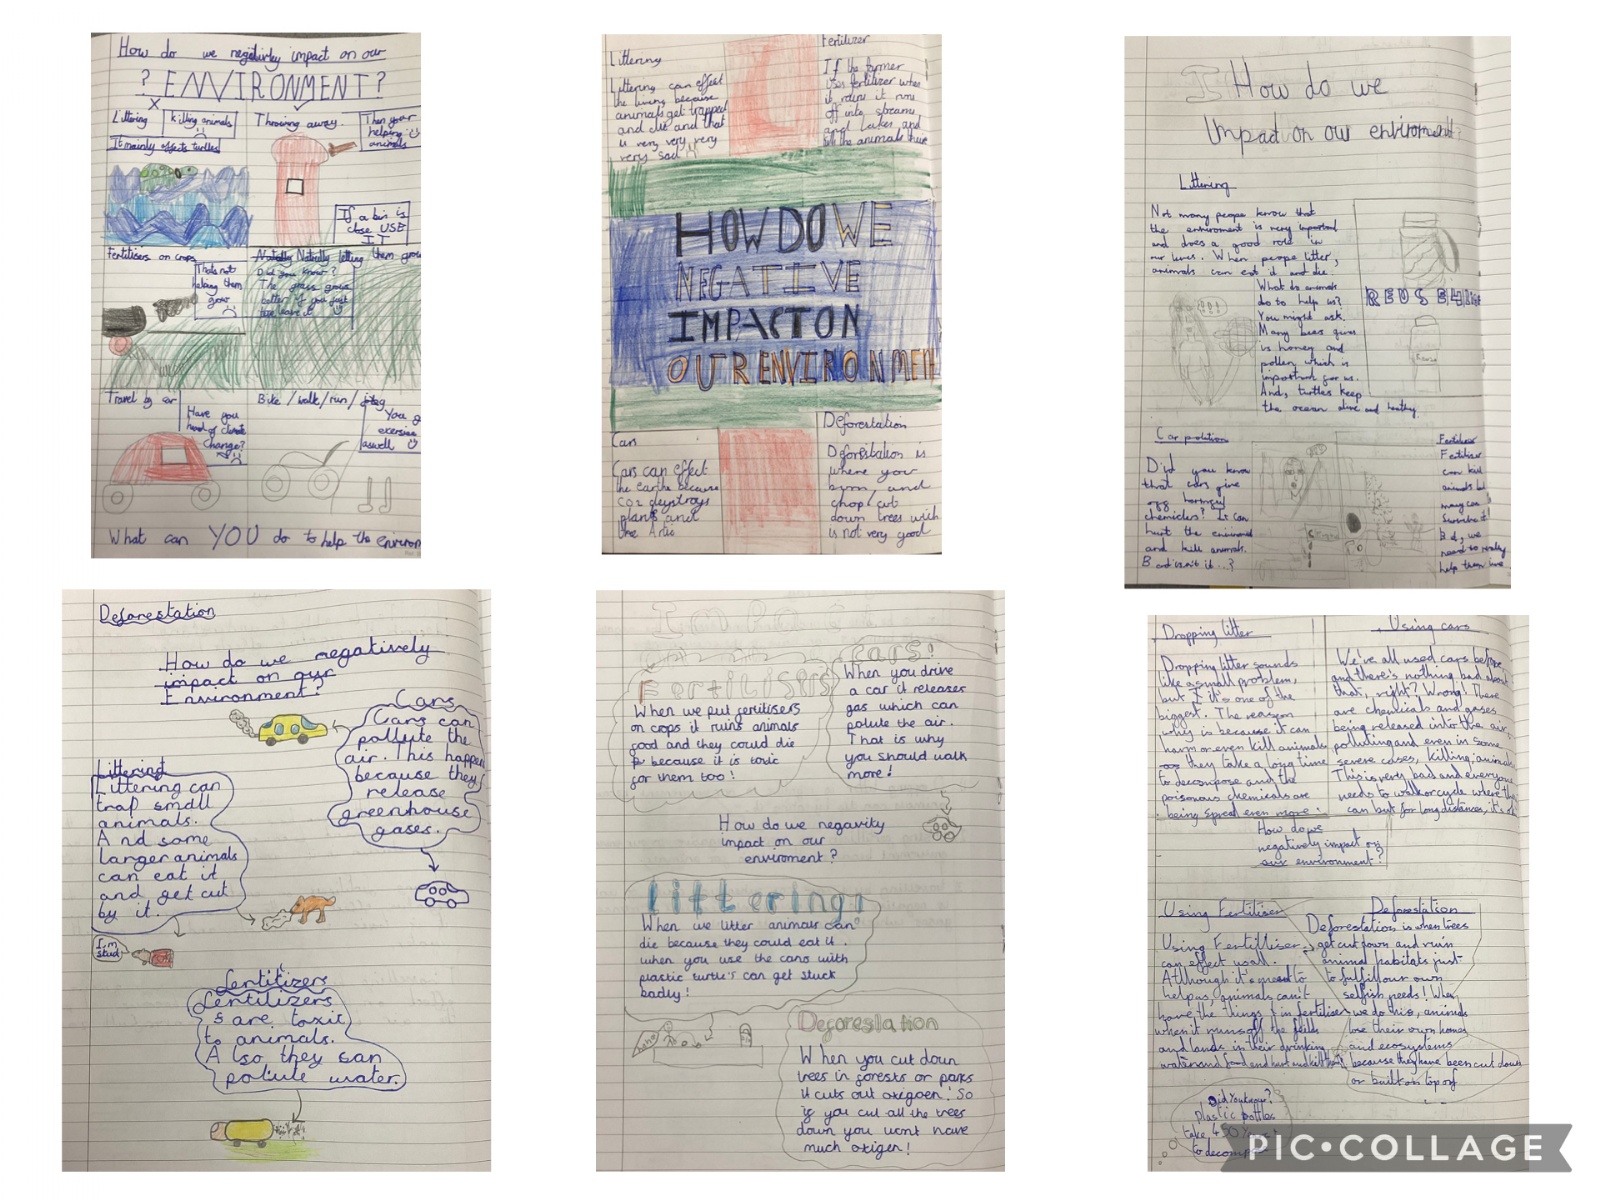 How do we negativly impact on our
? ENVIRONMENT?
Littering
killing animals
It mainly effects turtles
Throwing away.
Then your
helping
animals
If a bin is
close USE
IT
Fertilisers on crops
Thats not
helping them
grow
letting them grow
Did you know?
The grass grows
better if you just
leave it
Travel by car
Have you
heard of climate
change?
Bike / walk / run / jog
You
exersise
aswell
What can YOU do to help the environ
Littering
Littering can effect
the living because
animals get trapped
and die and that
is very very very
very sad
Fertilizer
If the farmer
uses fertilizer when
it rains it runs
off into streams
and lakes and
kills the animals there
HOW DO WE
NEGATIVE
IMPACT ON
OUR ENVIRONMENT
Cars
Cars can effect
the earth because
CO2 deystroys
plants and
the Artic
Deforestation
Deforistation is
where your
burn and
chop/cut
down trees wich
is not very good
How do we
Impact on our enviroment?
Littering
Not many peope know that
the enviroment is very important
and does a good role in
our lives. When peope litter,
animals can eat it and die.
What do animals
do to help us?
You might ask.
Many bees give
us honey and
pollen which is
important for us.
And, turtles keep
the ocean alive and healthy.
REUSE
Car polution
Did you know
that cars give
off harmful
chemicles? It can
hurt the enviroment
and kill animals.
Bad isn't it...?
Fertiliser
Fertiliser
can kill
animals but
many can
survive it
But, we
need to really
help them live
Deforestation
How do we negatively
impact on our
Environment?
Cars
Cars can
pollute the
air. This happen
because they
release
greenhouse
gases.
Littering
Littering can
trap small
animals.
And some
larger animals
can eat it
and get cut
by it.
I'm
stuck
Fertilizers
Fertilizers
are toxic
to animals.
Also they can
polute water.
Fertilisers
When we put fertilisers
on crops it ruins animals
food and they could die
because it is toxic
for them too!
Cars!
When you drive
a car it releases
gas which can
polute the air.
That is why
you should walk
more!
How do we negavity
impact on our
enviroment?
littering!
When we litter animals can
die because they could eat it.
when you use the cans with
plastic turtle's can get stuck
badly!
Deforestation
When you cut down
trees in forests or parks
it cuts out oxegoen! So
if you cut all the trees
down you wont have
much oxigen!
Dropping litter
Dropping litter sounds
like a small problem,
but it's one of the
biggest. The reason
why is because it can
harm or even kill animals
as they take a long time
to decompose and the
poisonous chemicals are
being spread even more.
Using cars
We've all used cars before,
and there's nothing bad about
that, right? Wrong! There
are chemicals and gases
being released into the air,
polluting and even in some
severe cases, killing animals
This is very bad and everyone
needs to walk or cycle where they
can but for long distances, it's ok
How do we
negatively impact on
our environment?
Using Fertiliser
Using Fertilliser
can effect us all.
Although it's meant to
help us, animals can't
have the things in fertiliser
when it runs off the fields
and lands in their drinking
water and food and
Deforestation
Deforestation is when trees
get cut down and ruin
animal habitats just
to fulfill our own
selfish needs! When
we do this, animals
lose their own homes
and ecosystems
because they have been cut down
or built on top of
Did you know?
Plastic bottles
take 450 years
to decompose
PIC•COLLAGE